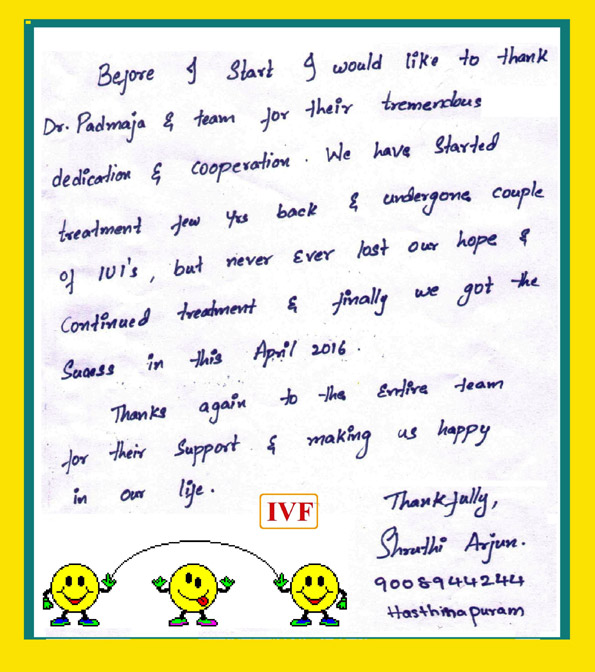 Before I Start I would like to thank
Dr. Padmaja & team for their tremendous
dedication & cooperation. We have Started
treatment few yrs back & undergone couple
of IUI's, but never Ever lost our hope &
Continued treatment & finally we got the
Sucess in this April 2016.
Thanks again to the Entire team
for their Support & making us happy
in our life.
IVF
Thankfully,
Shruthi Arjun.
9008944244
Hasthinapuram